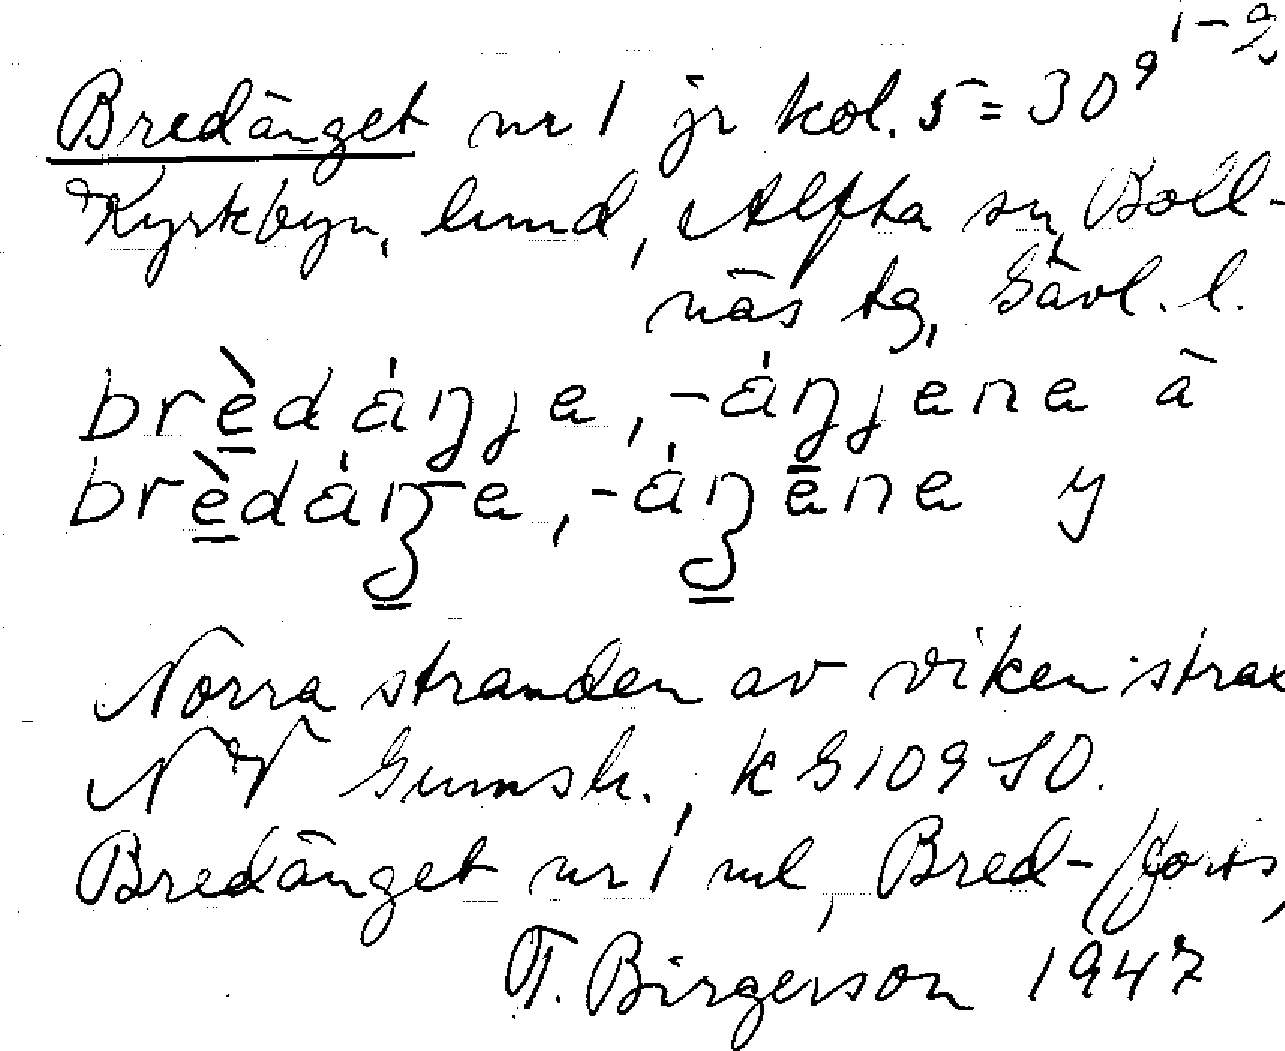 1-2
Bredänget nr 1 jr kol. 5 = 30⁹
Kyrkbyn, lund, Alfta sn, Boll-
näs tg, Gävl. l.
brèdáŋje, -áŋjene ä
brèdáŋe, -áŋene y
Norra stranden av viken strax
NV Gumsh., k G 109 SO.
Bredänget nr 1 ml, Bred- /forts,
T. Birgerson 1947